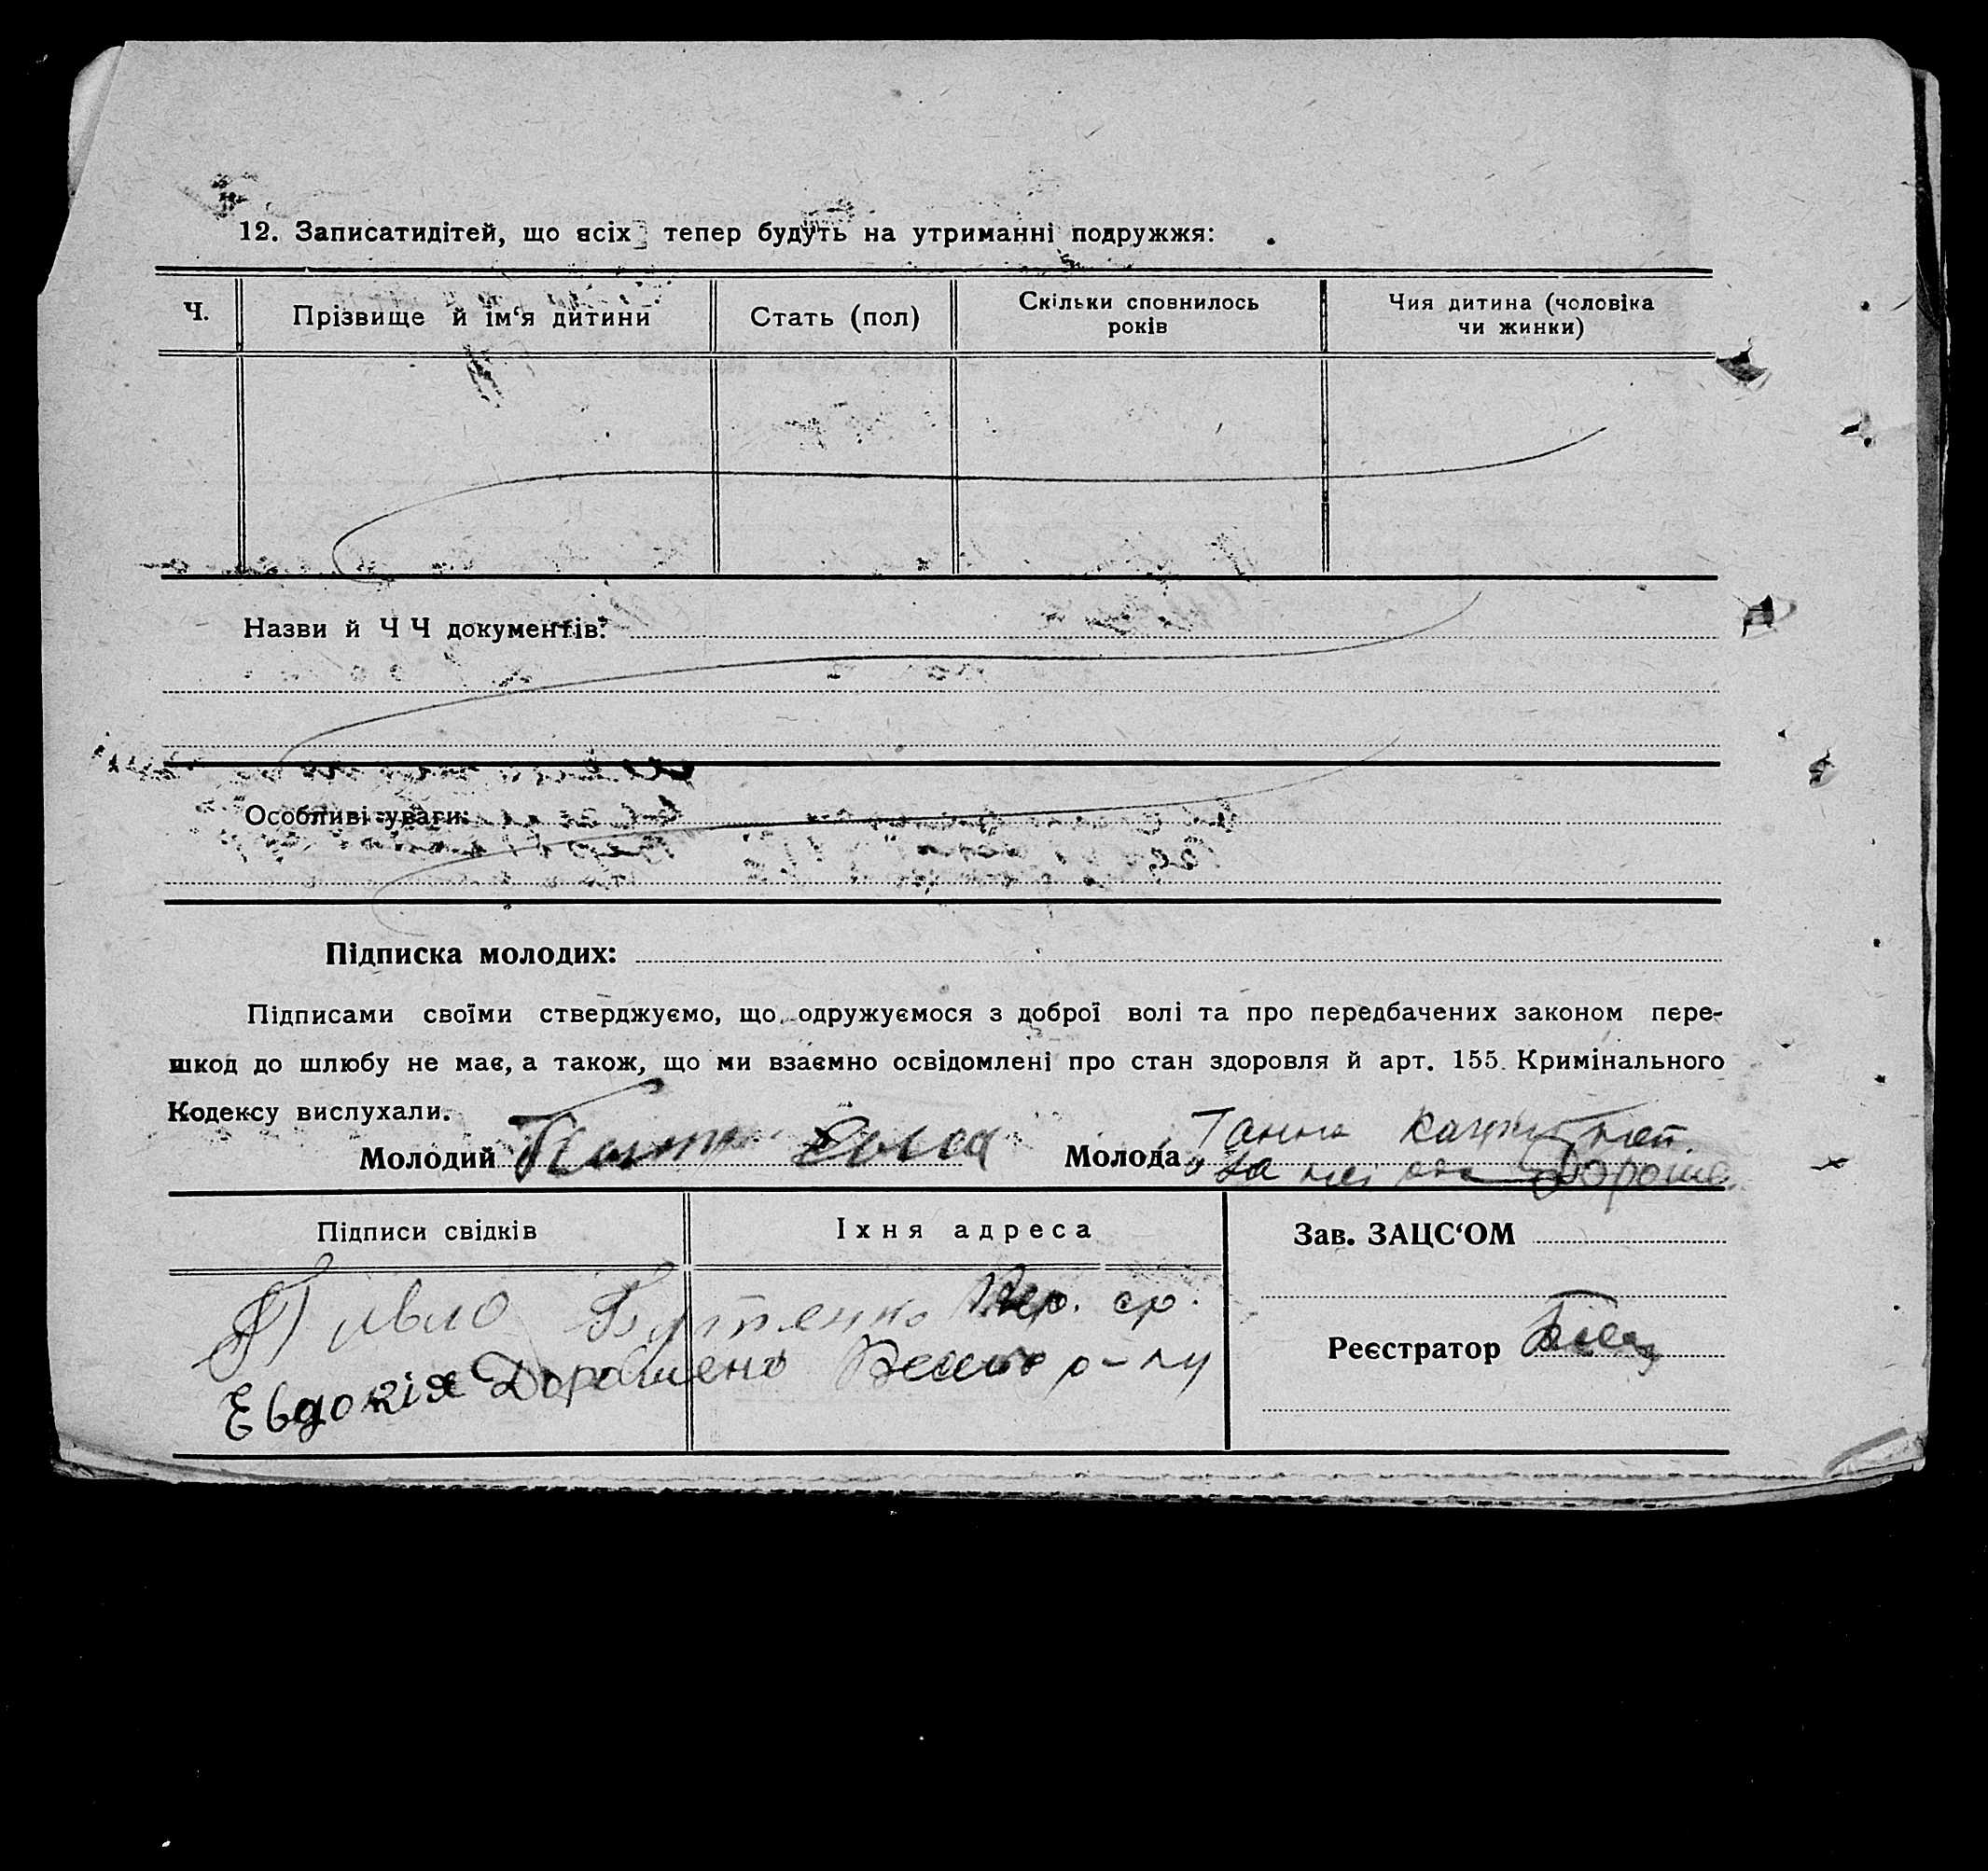 12. Записатидітей, що всіх тепер будуть на утриманні подружжя:
Ч.
Прізвище й ім‘я дитини
Стать (пол)
Скільки сповнилось
років
Чия дитина (чоловіка
чи жинки)
Назви й Ч Ч документів:
Особливі уваги:
Підписка молодих:
Підписами своїми стверджуємо, що одружуємося з доброї волі та про передбачених законом пере-
шкод до шлюбу не має, а також, що ми взаємно освідомлені про стан здоровля й арт. 155 Кримінального
Кодексу вислухали.
Молодий
Молода Ганна
за неї Дороше
Підписи свідків
Їхня адреса
Зав. ЗАЦС‘ОМ
Павло Бутенко
Евдокія Дорошено
Реєстратор